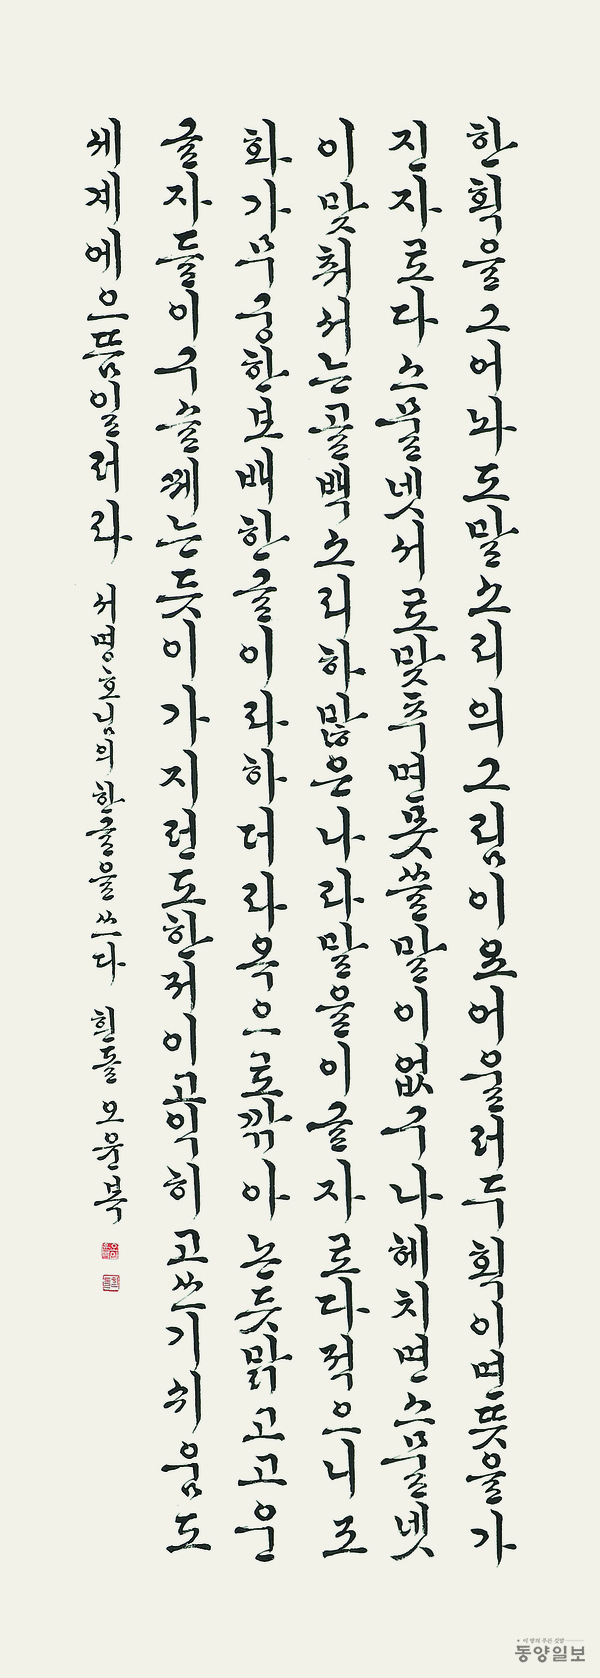 한획을그어놔도말소리의그림이요어울러두획이면뜻을가
진자로다스물넷서로맞추면뜻쓸말이없구나헤치면스물넷
이맞춰서는골백소리하많은나라말을이글자로다적으니조
화가무궁한보배한글이라하더라옥으로깎아논듯맑고고운
글자들이구슬께는듯이가지런도한저이고익히고쓰기쉬움도
세계에으뜸일러라 서명호님의한글을쓰다 흰돌오윤복
동양일보